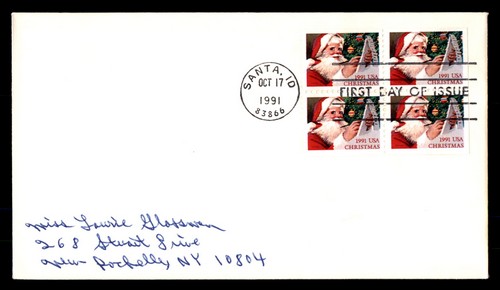 SANTA, ID
OCT 17
1991
83866
FIRST DAY OF ISSUE
1991 USA
CHRISTMAS
1991 USA
CHRISTMAS
1991 USA
CHRISTMAS
1991 USA
CHRISTMAS
Miss Laurie
268 Stuart Drive
New Rochelle, NY 10804